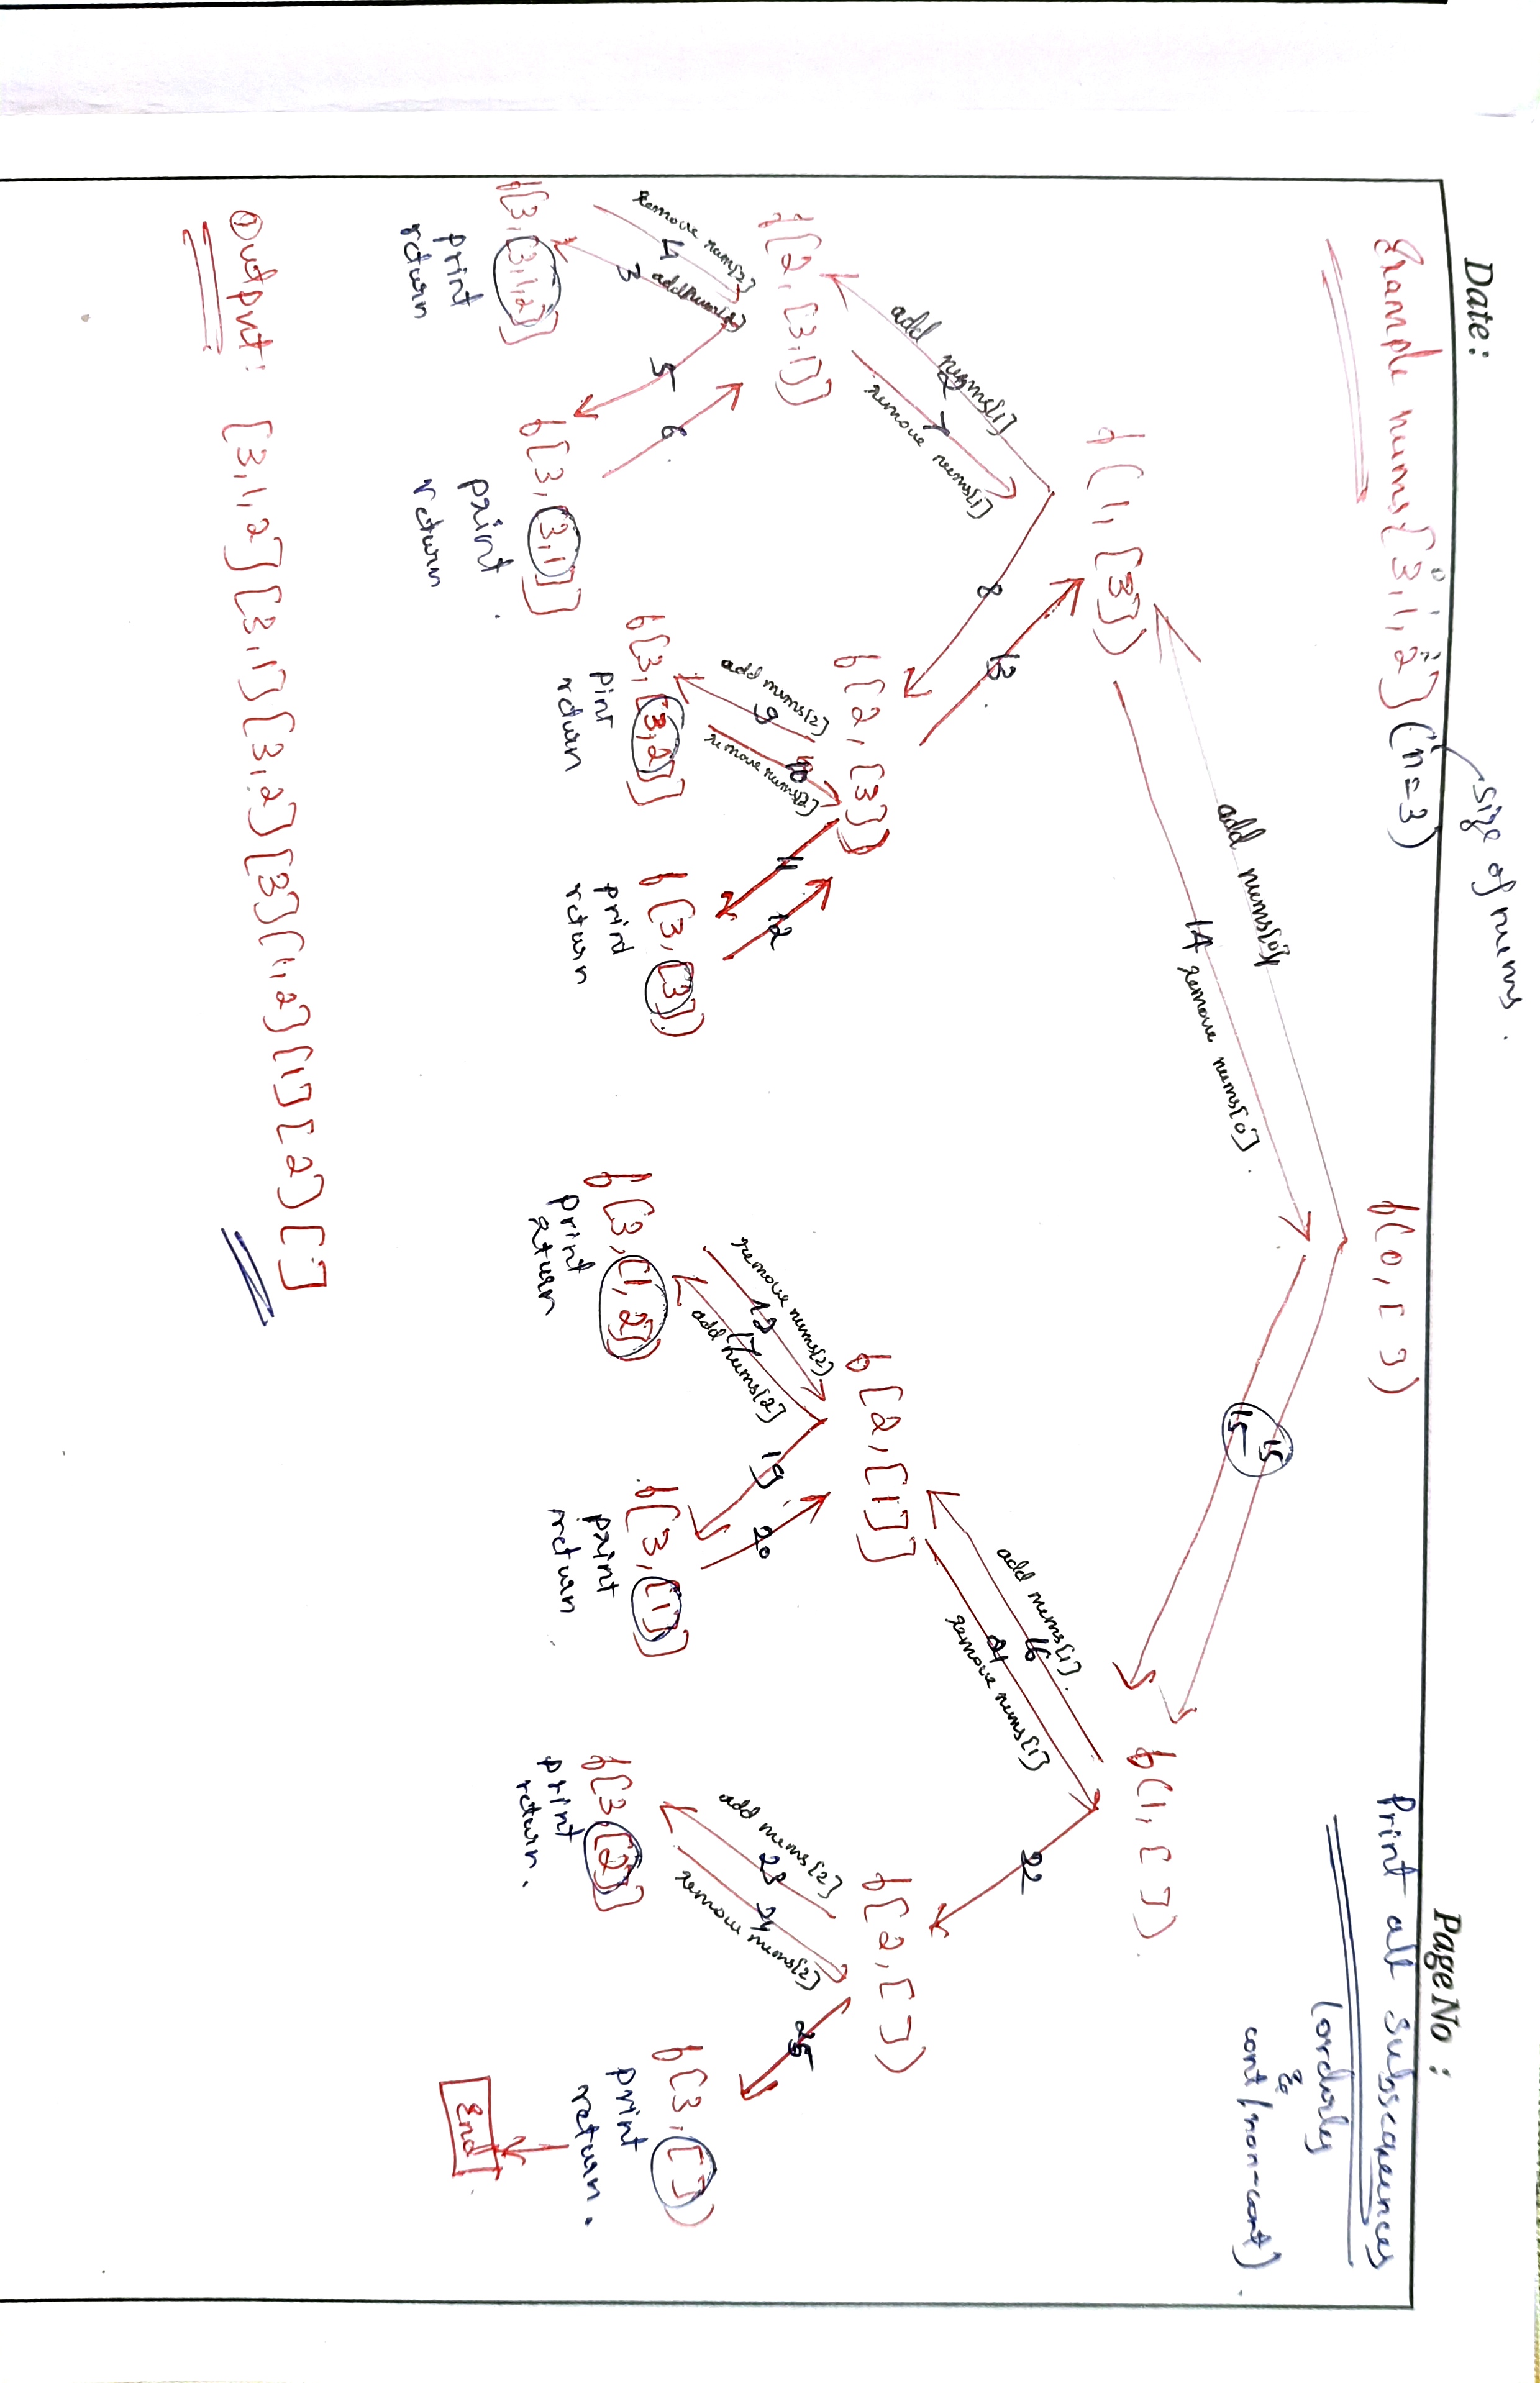 size of nums.
Date:
Page No :
0 1 2
Example nums[3,1,2] (n=3)
f(0, [ ])
Print all subsequences
(orderly
&
cont/non-cont).
add nums[0]
14 remove nums[0].
15
15
f(1, [3])
f(1, [ ]).
add nums[1]
2
7
remove nums[1]
8
13
add nums[1].
16
21
remove nums[1]
22
f[2, [3,1]]
f[2, [3])
f[2, [1]]
f[2, [ ])
remove nums[2]
4
add nums[2]
3
5
6
add nums[2]
9
10
remove nums[2]
11
12
remove nums[2]
18
17
add nums[2]
19
20
add nums[2]
23
24
remove nums[2]
25
f[3, [3,1,2]]
print
return
f[3, [3,1]]
print
return
f[3, [3,2]]
Pint
return
f[3, [3])
print
return
f[3, [1,2])
print
return
f[3, [1]]
print
return
f[3, [2]]
print
return.
f[3, [ ])
print
return.
End
Output: [3,1,2] [3,1] [3,2] [3] [1,2] [1] [2] [ ]